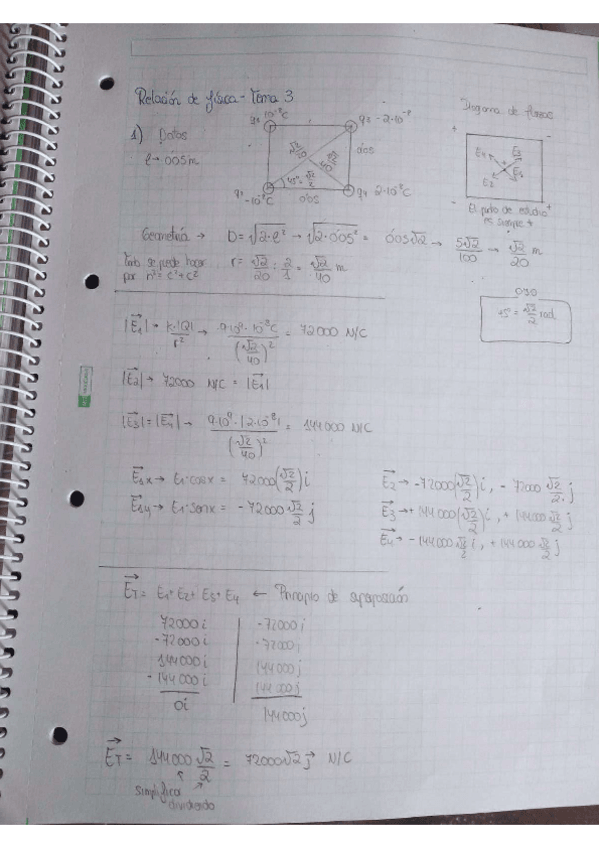 Relación de física - Tema 3
1) Datos
l → 0'05 m
q1 10⁻⁸C
q3 - 2·10⁻⁸
√2/20
√2/40
0'05
45º = √2/2
-10⁻⁸C
0'05
q4 2·10⁻⁸C
Diagrama de fuerzas
+ -
E4 E3
E2 E1
- +
El punto de estudio es siempre +
Geometría → D = √2·l² → √2·0'05² = 0'05√2 → 5√2/100 → √2/20 m
por h² = c² + c²
r = √2/20 : 2/1 = √2/40 m
OJO
45 = √2/2 rad
|E1| = K·|Q|/r² → 9·10⁹·10⁻⁸C/(√2/40)² = 72000 N/C
|E2| → 72000 N/C = |E1|
|E3| = |E4| → 9·10⁹·|2·10⁻⁸|/(√2/40)² = 144000 N/C
E1x → E1·cosx = 72000(√2/2)i
E1y → E1·senx = -72000 √2/2 j
E2 → -72000(√2/2)i, -72000 √2/2 j
E3 → +144000(√2/2)i, +144000 √2/2 j
E4 → -144000 √2/2 i, +144000 √2/2 j
ET = E1 + E2 + E3 + E4 ← Principio de superposición
72000i | -72000j
-72000i | -72000j
144000i | 144000j
-144000i | 144000j
0i | 144000j
ET = 144000 √2/2 = 72000√2 j N/C
simplifica dividiendo